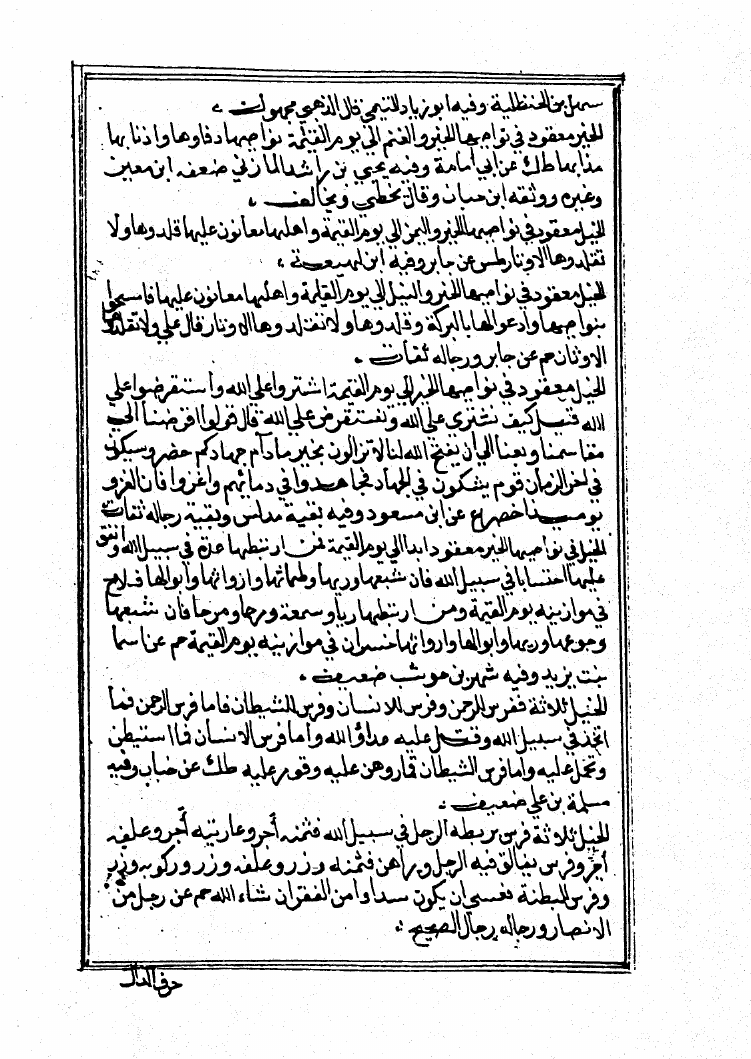 سهل بن الحنظلية وفيه ابو زياد التيمي قال الذهبي مجهول
الخير معقود في نواصيها الخير والغنم الي يوم القيمة نواصيها دفاوها واذنابها
مذابها طك عن ابي امامة وفيه يحيي بن راشد المازني ضعفه ابن معين
وغيره ووثقه ابن حبان وقال يخطي ويخالف
الخيل معقود في نواصيها الخير واليمن الي يوم القيمة واهلها معانون عليها قلدوها ولا
تقلدوها الاوتار طس عن جابر وفيه ابن لهيعة
الخيل معقود في نواصيها الخير والنيل الي يوم القيمة واهلها معانون عليها فامسحوا
بنواصيها وادعوا لها بالبركة وقلدوها ولا تقلدوها الاوتار قال علي ولا تقلدوها
الاوثان حم عن جابر ورجاله ثقات
الخيل معقود في نواصيها الخير الي يوم القيمة اشتروا علي الله واستقرضوا علي
الله قيل كيف نشتري علي الله ونستقرض علي الله قال قولوا اقرضنا الي
مقاسمنا وبعنا الي ان يفتح الله لنا لا تزالون بخير ما دام جهادكم حضر وسيكون
في اخر الزمان قوم يشكون في الجهاد فجاهدوا في دمائهم واغزوا فان الغزو
يومئذ اخضر ع عن ابن مسعود وفيه بقية مدلس وبقية رجاله ثقات
الخيل في نواصيها الخير معقود ابدا الي يوم القيمة فمن ارتبطها عدة في سبيل الله وانفق
عليها احتسابا في سبيل الله فان شبعها وريها وظمائها وارواثها وابوالها فلاح
في موازينه يوم القيمة ومن ارتبطها ريا وسمعة وفرحا ومرحا فان شبعها
وجوعها وريها وابوالها وارواثها خسران في موازينه يوم القيمة حم عن اسما
بنت يزيد وفيه شهر بن حوشب ضعيف
الخيل ثلاثة ففرس للرحمن وفرس للانسان وفرس للشيطان فاما فرس الرحمن فما
اتخذ في سبيل الله وقتل عليه عداؤ الله واما فرس الانسان فما استبطن
وتحمل عليه واما فرس الشيطان فما روهن عليه وقومر عليه طك عن خباب وفيه
مسلمة بن علي ضعيف
الخيل ثلاثة فرس يربطه الرجل في سبيل الله فثمنه أجر وعاريته أجر وعلفه
أجر وفرس يغالق فيه الرجل ويراهن فثمنه وزر وعلفه وزر وركوبه وزر
وفرس للبطنة فعسي ان يكون سدادا من الفقر ان شاء الله حم عن رجل من
الانصار ورجاله رجال الصحيح
حرف الدال